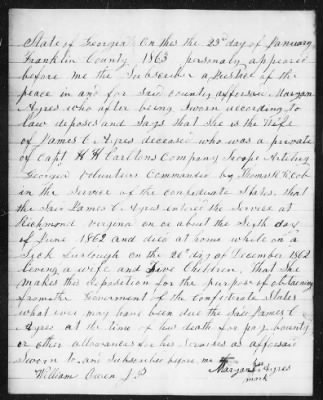 State of Georgia On this the 23rd day of January
Franklin County 1863 personaly appeared
before me the Subscriber a Justice of the
peace in and for Said county afforsaid Margan
Ayres who after being Sworn according to
law deposes and Says that She is the Wife
of James C. Ayres deceased who was a private
of Capt H H Carltons Company Troope Artilery
Georgia Volunteers Commanded by Thomas R R Cob
in the Service of the confederate States, that
the Said James C. Ayres entered the Service at
Richmond Vergena on or about the Sixth day
of June 1862 and died at home while on a
Sick Furlough on the 26th day of December 1862
leving a wife and five Children, that She
makes this disposition for the purpose of obtaining
from the Goverment of the confederate States
what ever may have been due the Said James C
Ayres at the time of his death for pay bounty
or other allowances for his Services as afforsaid
Sworn to and Subscribed before me
Margan her Ayres
William Owen J. P.
mark